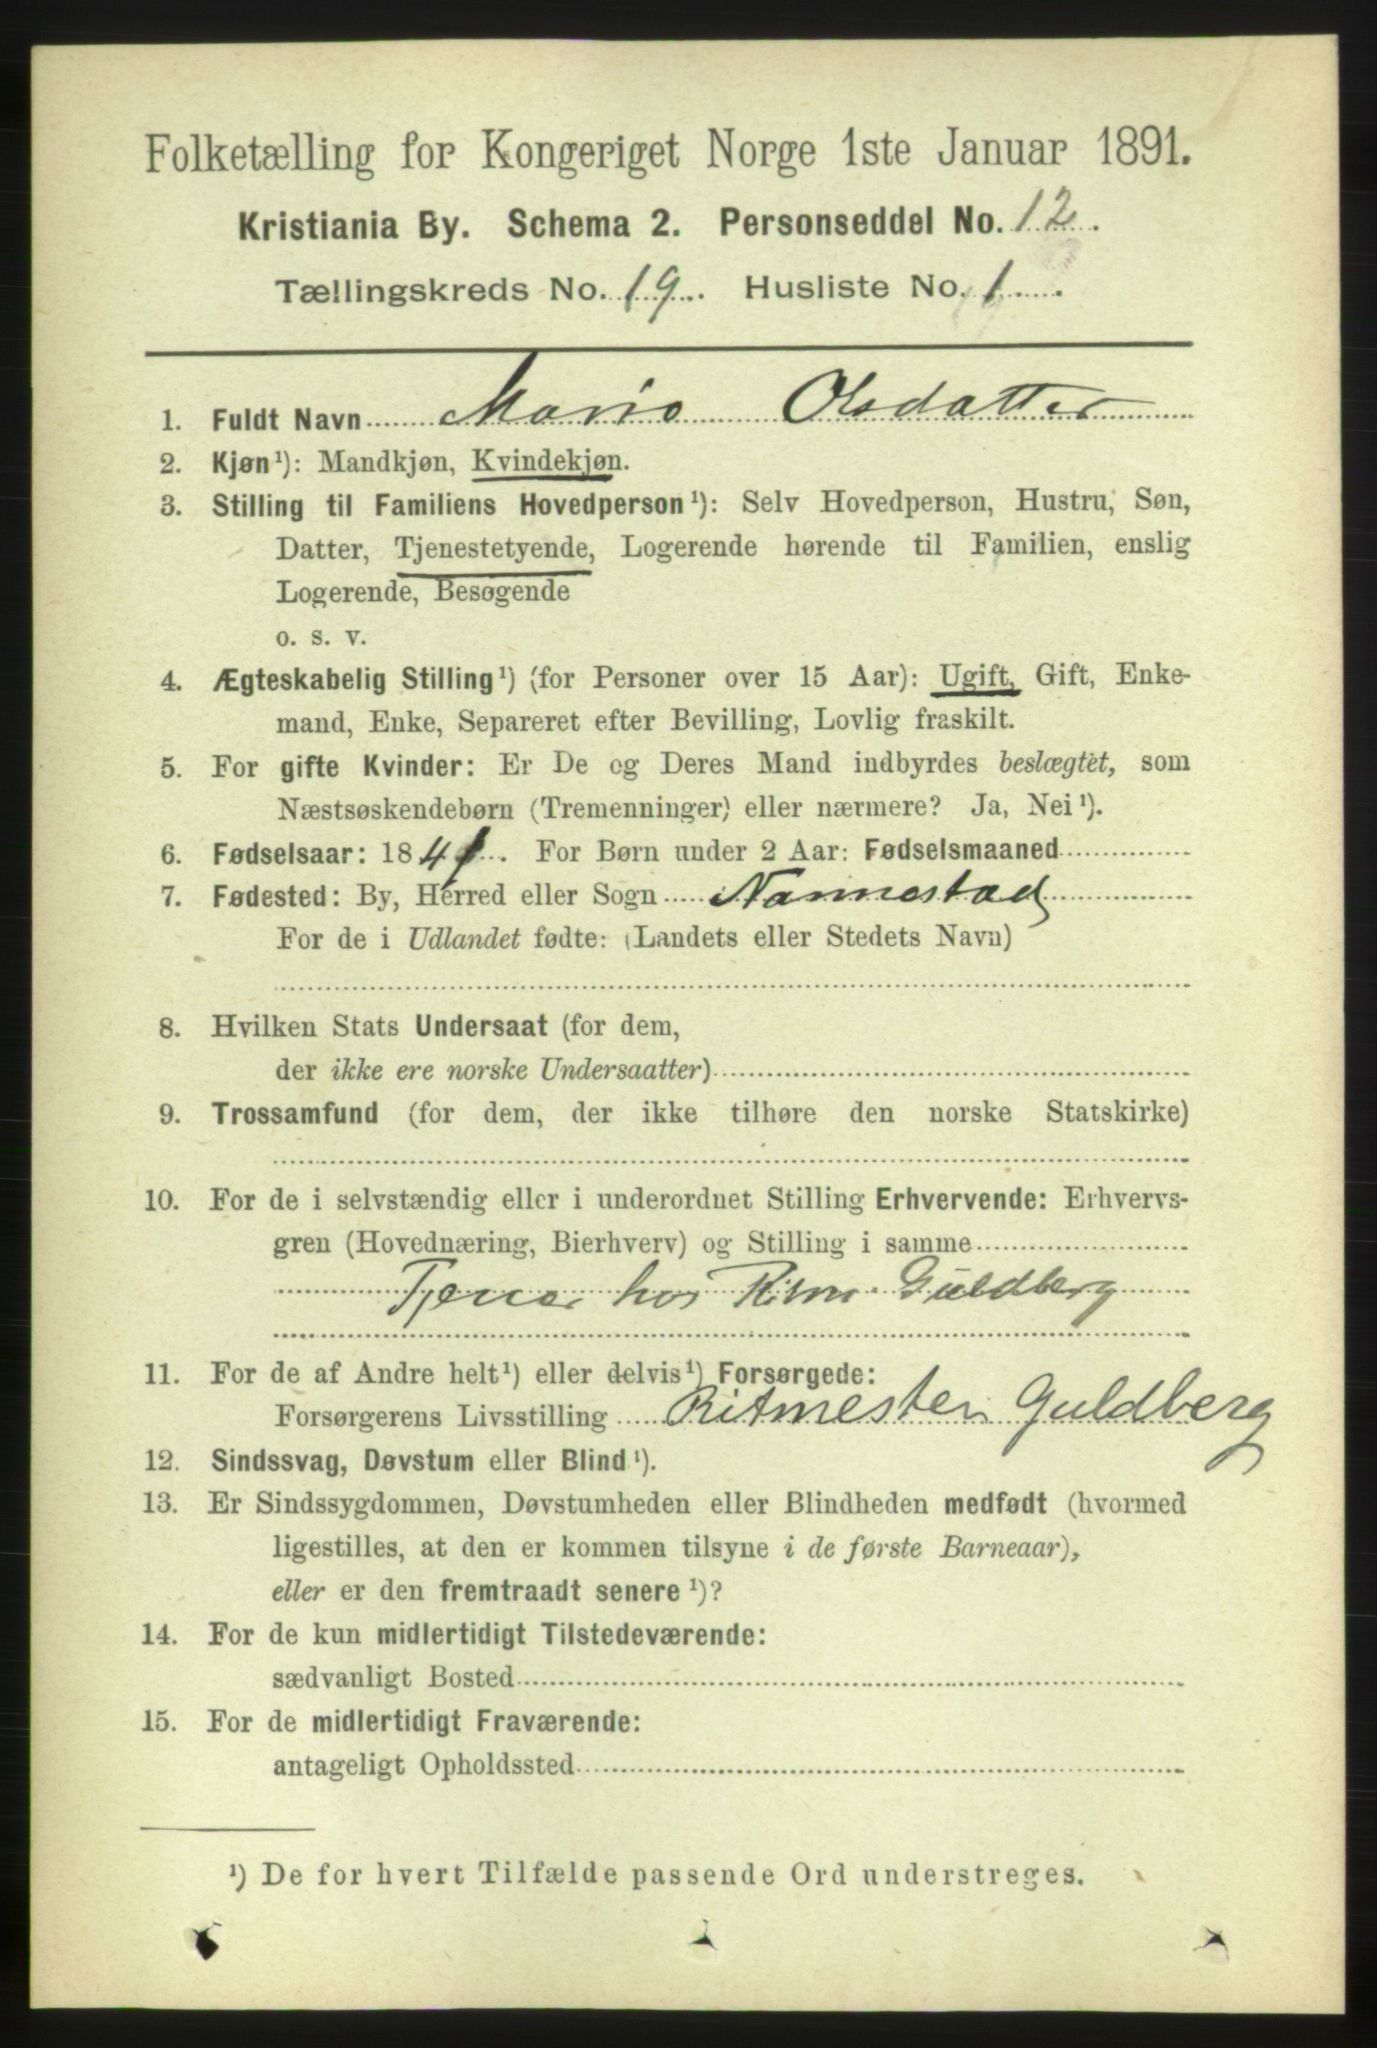 Folketælling for Kongeriget Norge 1ste Januar 1891.
Kristiania By. Schema 2. Personseddel No. 12.
Tællingskreds No. 19. Husliste No. 1.
1. Fuldt Navn Marie Olsdatter
2. Kjøn¹): Mandkjøn, Kvindekjøn.
3. Stilling til Familiens Hovedperson¹): Selv Hovedperson, Hustru, Søn,
Datter, Tjenestetyende, Logerende hørende til Familien, enslig
Logerende, Besøgende
o. s. v.
4. Ægteskabelig Stilling¹) (for Personer over 15 Aar): Ugift, Gift, Enke-
mand, Enke, Separeret efter Bevilling, Lovlig fraskilt.
5. For gifte Kvinder: Er De og Deres Mand indbyrdes beslægtet, som
Næstsøskendebørn (Tremenninger) eller nærmere? Ja, Nei¹).
6. Fødselsaar: 1841. For Børn under 2 Aar: Fødselsmaaned
7. Fødested: By, Herred eller Sogn Nannestad
For de i Udlandet fødte: (Landets eller Stedets Navn)
8. Hvilken Stats Undersaat (for dem,
der ikke ere norske Undersaatter)
9. Trossamfund (for dem, der ikke tilhøre den norske Statskirke)
10. For de i selvstændig eller i underordnet Stilling Erhvervende: Erhvervs-
gren (Hovednæring, Bierhverv) og Stilling i samme
Tjener hos Ritm. Guldberg
11. For de af Andre helt¹) eller delvis¹) Forsørgede:
Forsørgerens Livsstilling Ritmester Guldberg
12. Sindssvag, Døvstum eller Blind¹).
13. Er Sindssygdommen, Døvstumheden eller Blindheden medfødt (hvormed
ligestilles, at den er kommen tilsyne i de første Barneaar),
eller er den fremtraadt senere¹)?
14. For de kun midlertidigt Tilstedeværende:
sædvanligt Bosted
15. For de midlertidigt Fraværende:
antageligt Opholdssted
¹) De for hvert Tilfælde passende Ord understreges.